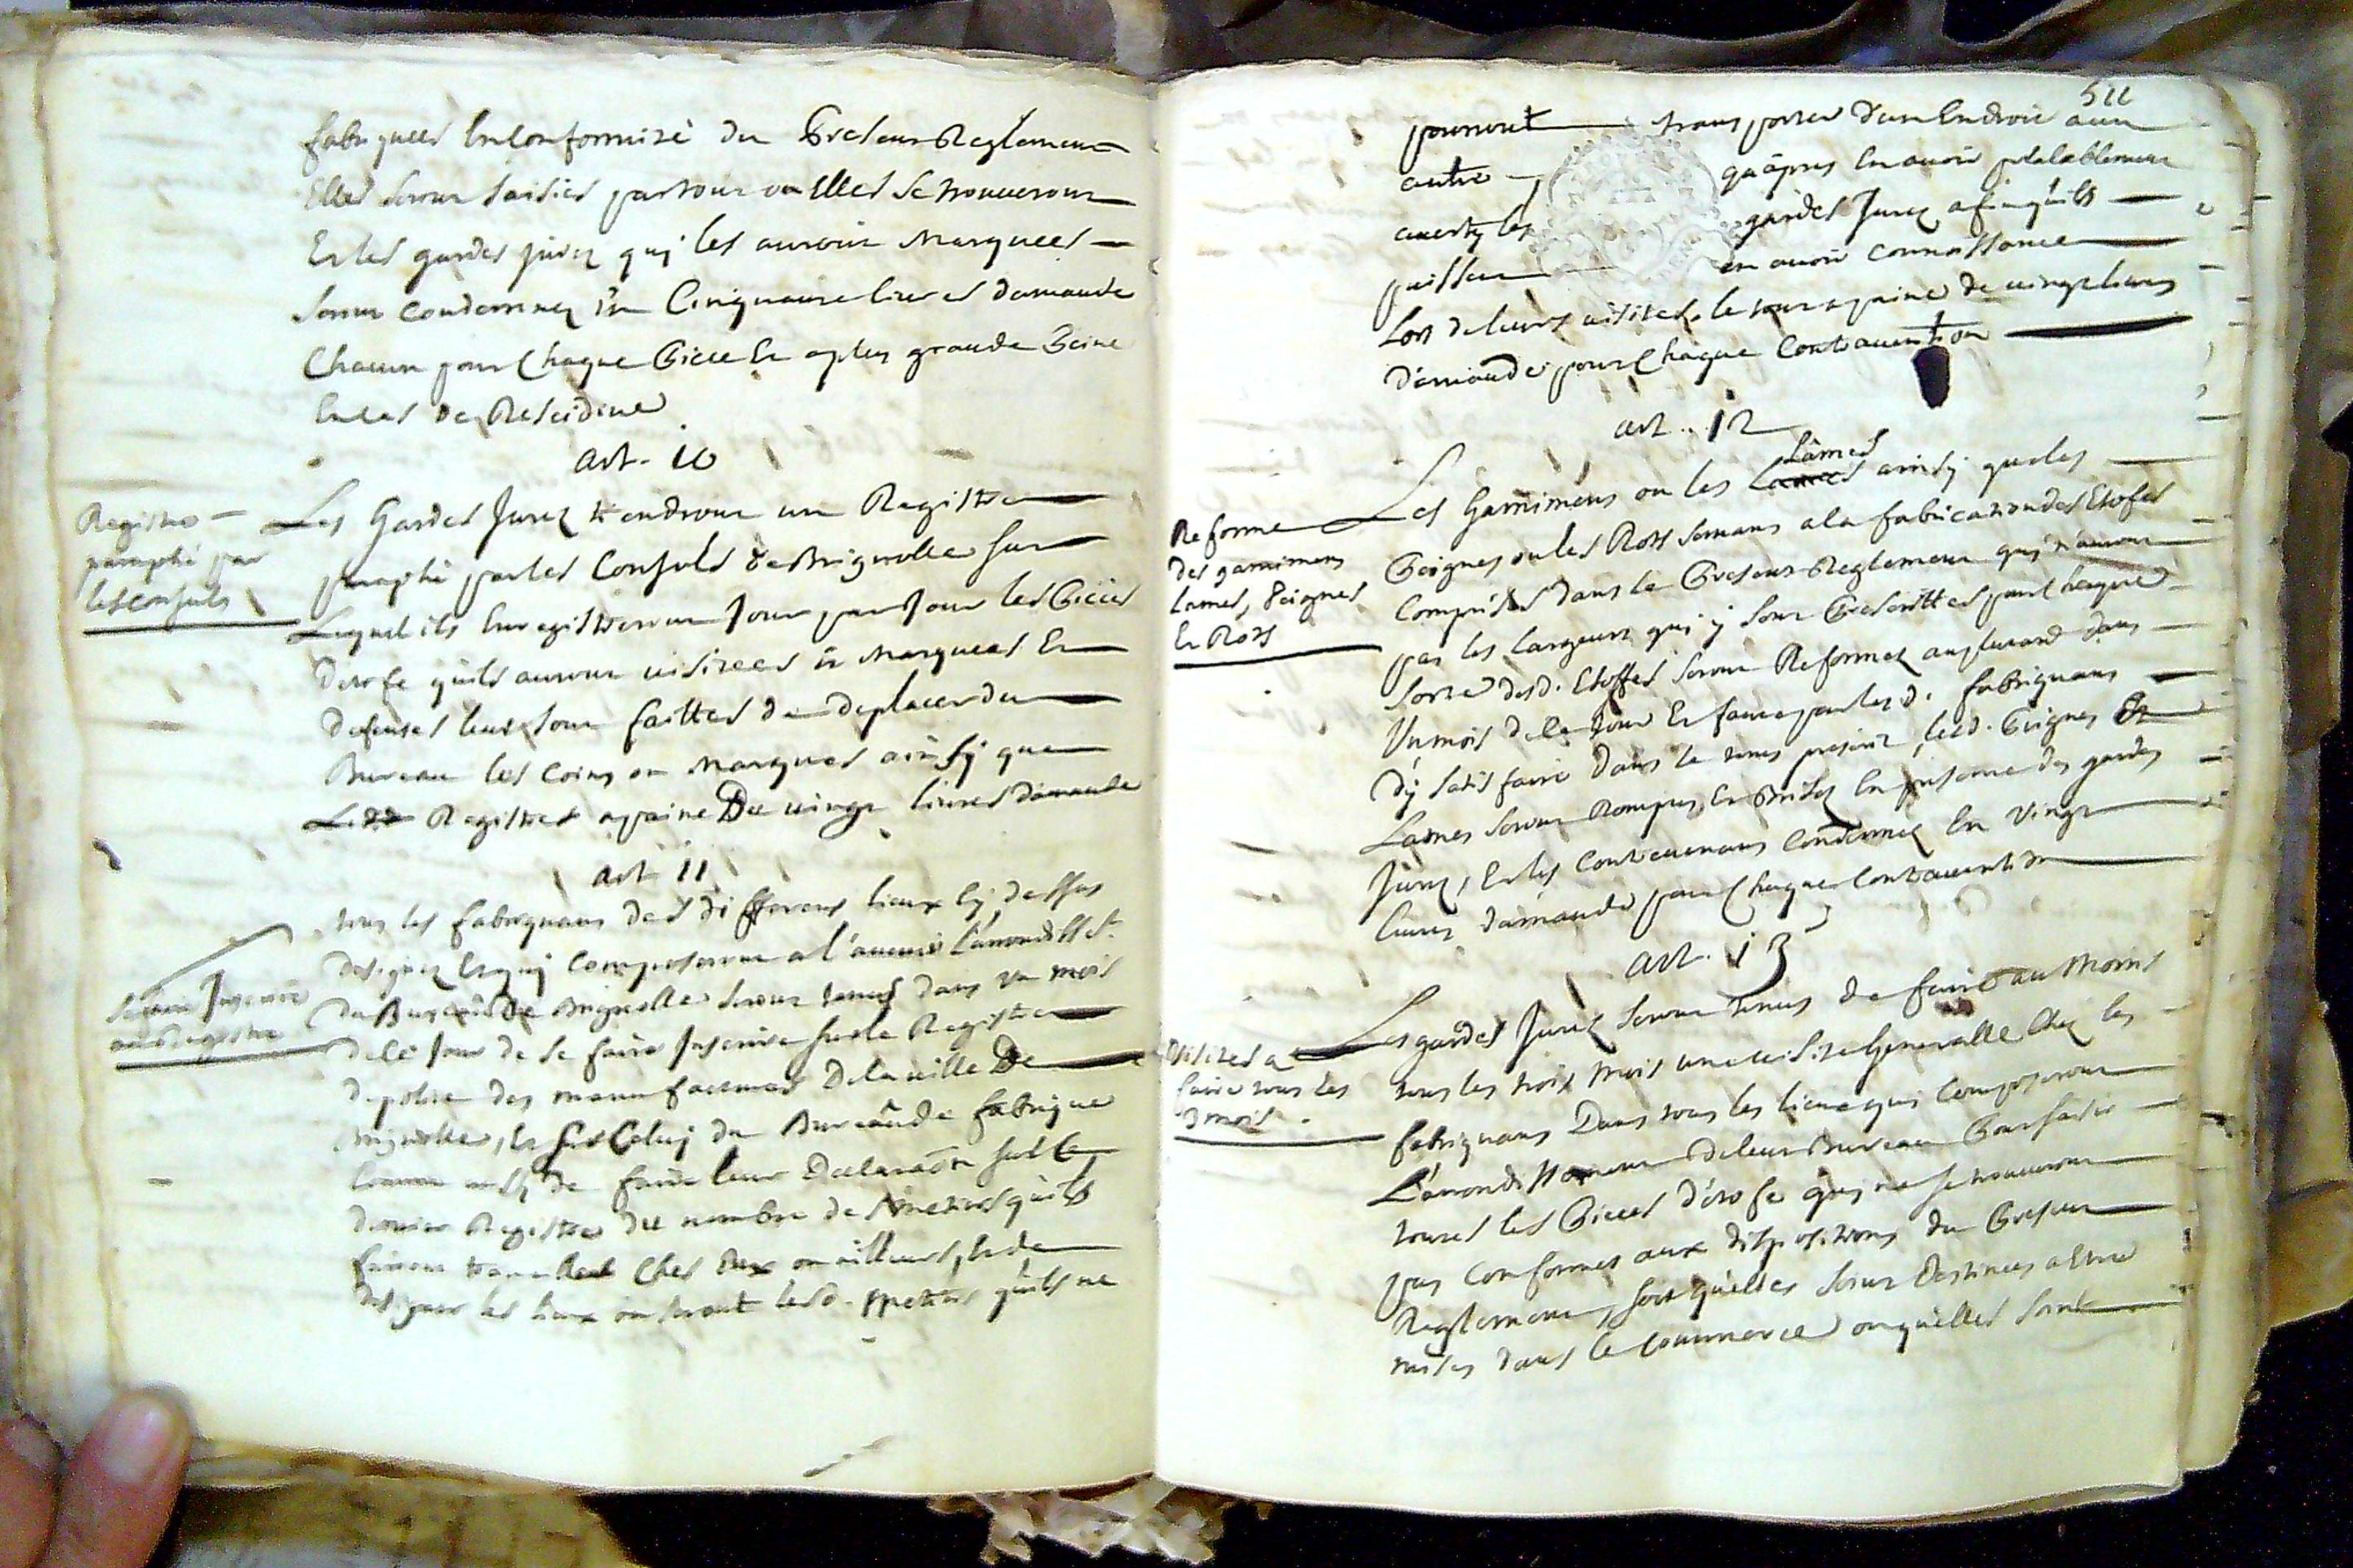 fabriquées En Conformité du Present Reglement
Elles seront saisies partout ou Elles se trouveront
Et les gardes jurez qui les auront Marquées
seront condemnez En Cinquante livres damande
Chacun pour Chaque Piece Et a plus grande Peine
En Cas de Rescidive
art. 10
Registre
paraphé par
les Consuls
Les Gardes Jurez tiendront un Registre
paraphé par les Consuls de Brignolle sur
Lequel ils Enregistreront Jour par Jour les Pieces
détofe quils auront visitées et Marquées Et
defenses leur sont faittes de deplacer du
Bureau les Coins ou Marques ainsy que
Registres a paine De vingt livres damande
art 11
Inscrire
au Registre
tous les fabriquans des differens lieux Cy dessus
designez Et qui Composeront a l'avenir L'arrondisst.
du Bureau De Brignolle seront tenus dans un mois
de ce Jour de se faire Inscrire sur le Registre
de police des manufactures De la ville De
Brignolle, Et sur Celuy du Bureau de fabrique
Comme aussy de faire leur Declaraon sur Ce
dernier Registre du nombre des metiers quils
fairont travailler Chés Eux ou ailleurs, Et de
designer les lieux ou seront lesd. metiers quils ne
511
pourront transporter d'un Endroit a un
autre qu'apres En avoir prealablement
averty les gardes Jurez afin quils
puissent en avoir connoissance
Lors de leurs visites, le tout a paine de vingt livres
d'amande pour Chaque Contravention
art. 12
Reforme
des garnimens
Lames, Peignes
Et Rots
Lames
Les Garnimens ou les ainsy que les
Peignes ou les Rots servans a la fabrication des Etofes
Comprises dans le Present Reglement qui n'auront
pas les largeurs qui y sont Prescrittes pour Chaque
sorte desd. Etoffes seront Reformez au plutard dans
Un mois de ce Jour Et faute par lesd. fabriquans
d'y satisfaire dans le tems prescrit, lesd. Peignes Et
Lames seront Rompus, Et Brisez En presence des gardes
Jurez, Et les Contrevenans Condemnez En Vingt
livres d'amande pour Chaque Contravention
art. 13
Visites a
faire tous les
3 mois.
Les gardes Jurez seront tenus de faire au Moins
tous les trois Mois une visite Generalle Chez les
fabriquans Dans tous les lieux qui Composeront
L'arondissement de leur Bureau Pour saisir
toutes les Pieces d'étofe qui ne se trouveront
pas Conformes aux dispositions du Present
Reglement, soit qu'elles soient Destinées a Etre
mises dans le Commerce ou qu'elles soint